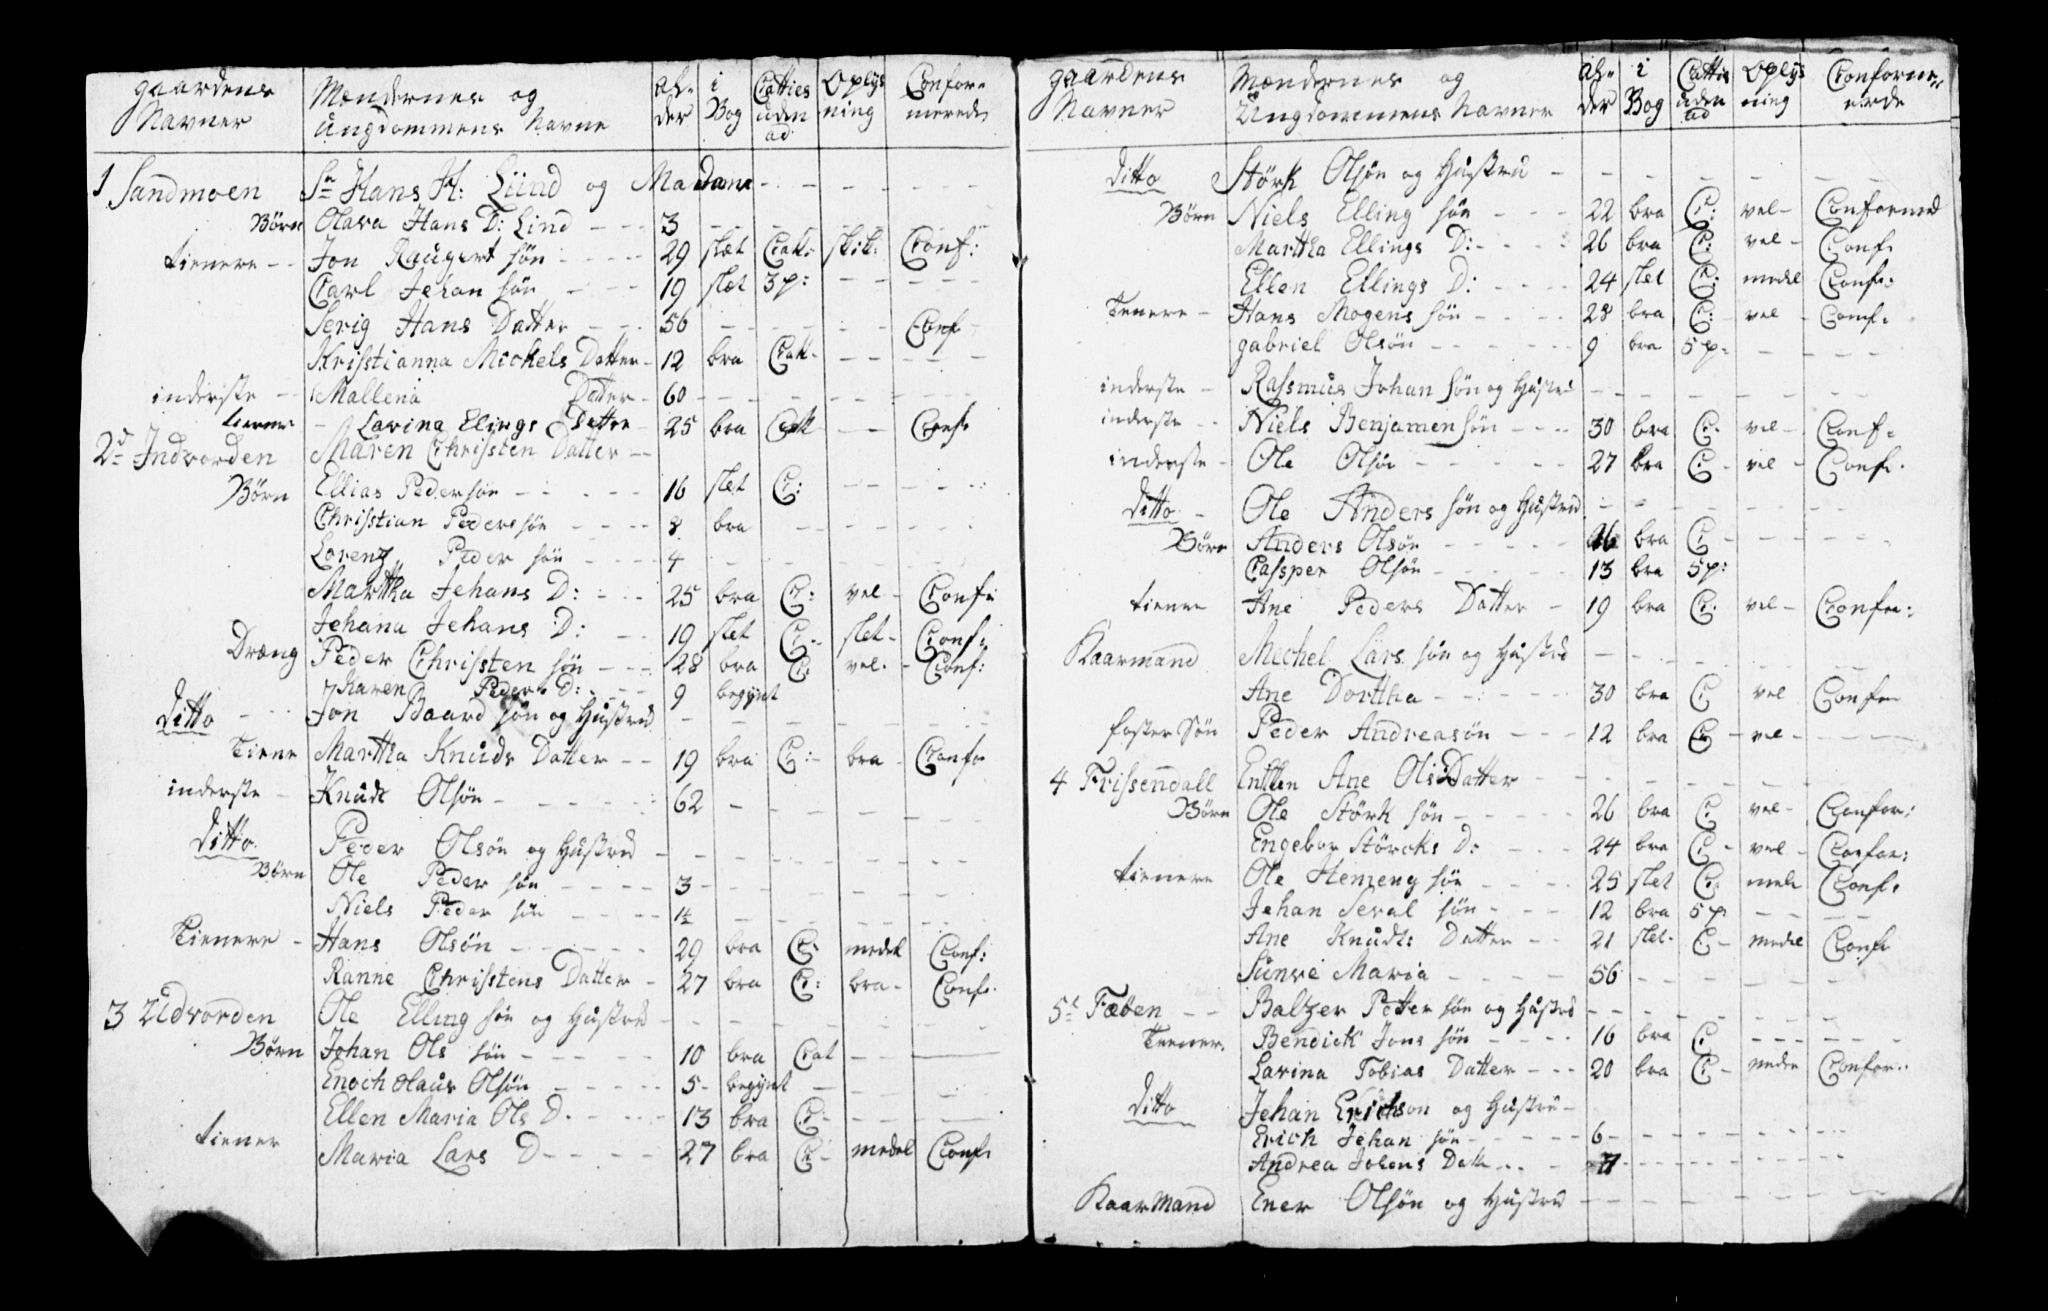 gaardens Navner | Mændernes og ungdommens Navne | al- der | i Bog | Catties uden ad | Oplys ning | Confor- merede
1 Sandmoen Sr Hans H: Lünd og Madame - - - - -
Børn Olava Hans D: Lind - - - 3 - - - - -
tienere - - Jon Raugert søn - - - - 29 slæt Cat: skik: Conf:
Carl Jehan søn - - - 19 slæt 3 p: - - - -
Serig Hans Datter - - - 56 - - - - Conf
Kristianna Mickels Datter - 12 bra Catt- - - - -
inderste - - Mallena Datter - 60 - - - - -
tiener - Lavina Elings Datter 25 bra Catt - - Conf:
2 Indvorden Maren Christen Datter - -
Børn Ellias Pedersøn - - - - - 16 slet C: - - - -
Christian Pedersøn - - - - 8 bra - - - - -
Lorenz Peder søn - - - - 4 - - - - -
Martha Jehans D: - - - 25 bra C: vel - Conf:
Jehana Jehans D: - - 19 slet C: - slet - Conf:
Dræng Peder Christen søn - - - 28 bra C: vel - Conf:
Karen Peders D: - - - 9 begynt
Ditto - - - Jon Baard søn og Hustrud - - - - -
Tiene Martha Knuds Datter - - 19 bra C: - bra - Conf:
inderste - Knudt Olsøn - - - - - - 62 - - - - -
Ditto Peder Olsøn og Hustrud - - - - -
Børn Ole Peder søn - - - - 3 - - - - -
Niels Peder søn - - - - 1¼ - - - - -
Tienere - Hans Olsøn - - - - - 29 bra C: medel Conf:
Ranne Christens Datter - 27 bra C: bra - Conf:
3 Udvorden Ole Elling søn og Hustrud - - - - -
Børn Johan Ols søn - - - - 10 bra Cat - - -
Enoch Olaus Olsøn - - - - - 5 - begynt - - - -
Ellen Maria Ols D. - - - - 13 bra C: - - - -
tiener Maria Lars D - - - - - 27 bra C: - medel Conf:
gaardens Navner | Mændernes og Ungdommens Navner | al- der | i Bog | Cattis uden ad | Oplys ning | Conforme- erde
Ditto Størk Olsøn og Hustrud - - - - - -
Børn Niels Elling søn - - - 22 bra C: vel - Conformed
Martha Ellings D: - - - 26 bra C: vel - Conf:
Ellen Ellings D: - - - - 24 slet C: medel Conf:
Tenere - Hans Mogens søn - - - - 28 bra C: - vel - Conf:
gabriel Olsøn - - - - - - 9 bra 5 p - - - - -
inderste - Rasmus Johan søn og Hustrud - - - - -
inderste - - Niels Benjamen søn - - - 30 bra C. vel - Conf:
inderste - Ole Olsøn - - - - - 27 bra C - vel - Conf.
Ditto - Ole Anders søn og Hustrud - - - - -
Børn Anders Olsøn - - - - - 16 bra C - - - - -
Casper Olsøn - - - - - 13 bra 5 p:
tienere Ane Peders Datter - 19 bra C: vel - Confer:
Kaarmand Mechel Lars søn og Hustrud - - - - -
Ane Dorttha - - - - - - 30 bra C: vel Confer
foster Søn Peder Andreasøn - - - 12 bra C - vel - - - -
4 Frissendall Enken Ane Ols Datter - - - - -
Børn Ole Størk søn - - - - - 26 bra C: vel - Confor:
Engebor Störcks D: - - - 24 bra C - vel - Confor:
tienere Ole Hemeng søn - - - - 25 slet C: mede Conf:
Jehan Seval søn - - - - 12 bra 5 p - - - -
Ane Knudts Datter - - 21 slet- C - medel Conf
Sünve Maria - - - - 56 - - - - -
5 Fæten - - Balzer Petter søn og Hustrud - - - - -
Teener. Bendick Jons søn - - - - 16 bra C - - - - -
Lavina Tobias Datter - - - 20 bra C - medel Confor:
Ditto Jehan Erichson og Hustru -
Erich Jehan søn - - - - - 6 - - - - -
Andrea Johens Datt - - - 7 - - - - -
Kaarmand Ener Olsøn og Hustrud - - - - -